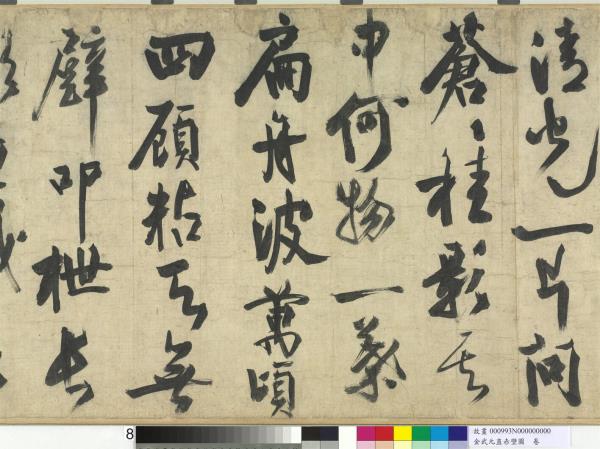 清光一片問
蒼〻桂影其
中何物一葉
扁舟波萬頃
四顧粘天無
壁叩枻長
8
故畫 000993N000000000
金武元直赤壁圖 卷